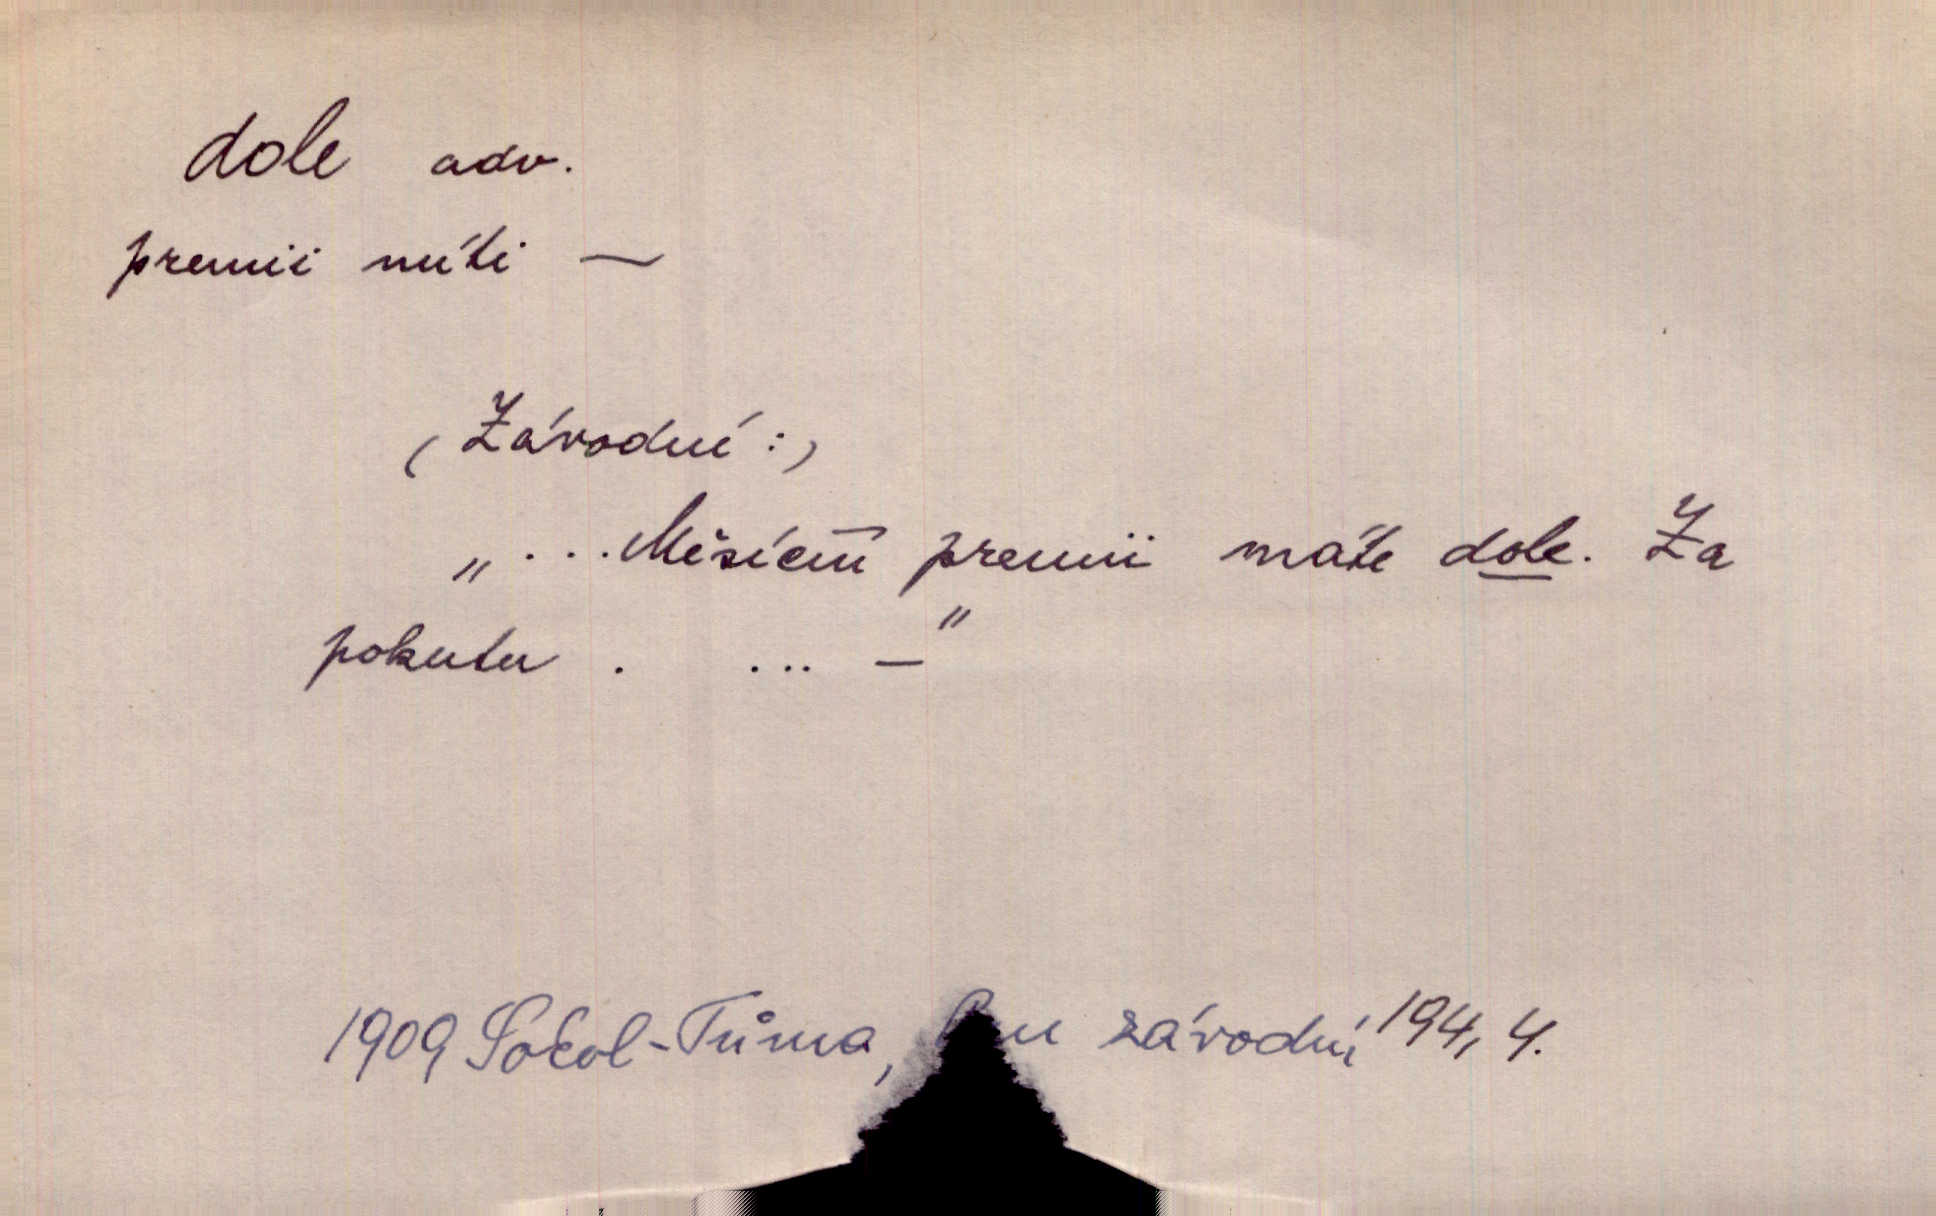 dole adv.
premii míti —
(Závodní:)
„ ... Měsíční premii máte dole. Za
pokutu . ... —"
1909 Sokol-Tůma, závodní, 194, 4.